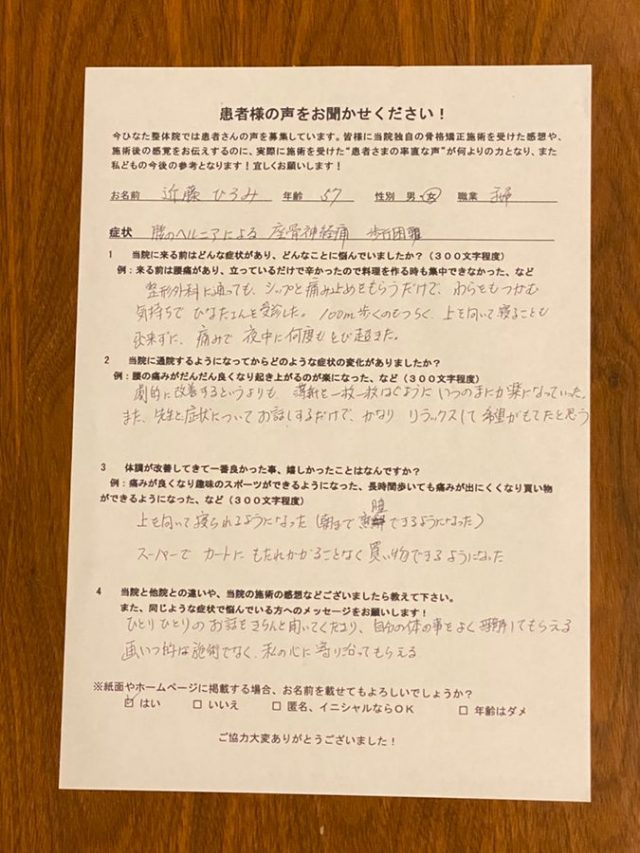 患者様の声をお聞かせください！
今ひなた整体院では患者さんの声を募集しています。皆様に当院独自の骨格矯正施術を受けた感想や、
施術後の感覚をお伝えするのに、実際に施術を受けた“患者さまの率直な声”が何よりの力となり、また
私どもの今後の参考となります！宜しくお願いします！
お名前 近藤 ひろみ 年齢 57 性別 男・女 職業 主婦
症状 腰のヘルニアによる 座骨神経痛 歩行困難
1 当院に来る前はどんな症状があり、どんなことに悩んでいましたか？（３００文字程度）
例：来る前は腰痛があり、立っているだけで辛かったので料理を作る時も集中できなかった、など
整形外科に通っても、シップと痛み止めをもらうだけで、わらをもつかむ
気持ちで ひなたさんを受診した。100m歩くのもつらく、上を向いて寝ることも
出来ずに、痛みで 夜中に何度もとび起きた。
2 当院に通院するようになってからどのような症状の変化がありましたか？
例：腰の痛みがだんだん良くなり起き上がるのが楽になった、など（３００文字程度）
劇的に改善するというよりも 薄紙を一枚一枚はぐように いつのまにか楽になっていった。
また、先生と症状についてお話しするだけで、かなり リラックスして希望がもてたと思う
3 体調が改善してきて一番良かった事、嬉しかったことはなんですか？
例：痛みが良くなり趣味のスポーツができるようになった、長時間歩いても痛みが出にくくなり買い物
ができるようになった、など（３００文字程度）
上を向いて寝られるようになった（朝まで熟睡できるようになった）
スーパーで カートに もたれかかることなく 買い物できるようになった
4 当院と他院との違いや、当院の施術の感想などございましたら教えて下さい。
また、同じような症状で悩んでいる方へのメッセージをお願いします！
ひとりひとりのお話をきちんと聞いてくださり、自分の体の事をよく理解してもらえる
画いつ的な施術でなく、私の心に寄り沿ってもらえる
※紙面やホームページに掲載する場合、お名前を載せてもよろしいでしょうか？
☑ はい □ いいえ □ 匿名、イニシャルならＯＫ □ 年齢はダメ
ご協力大変ありがとうございました！